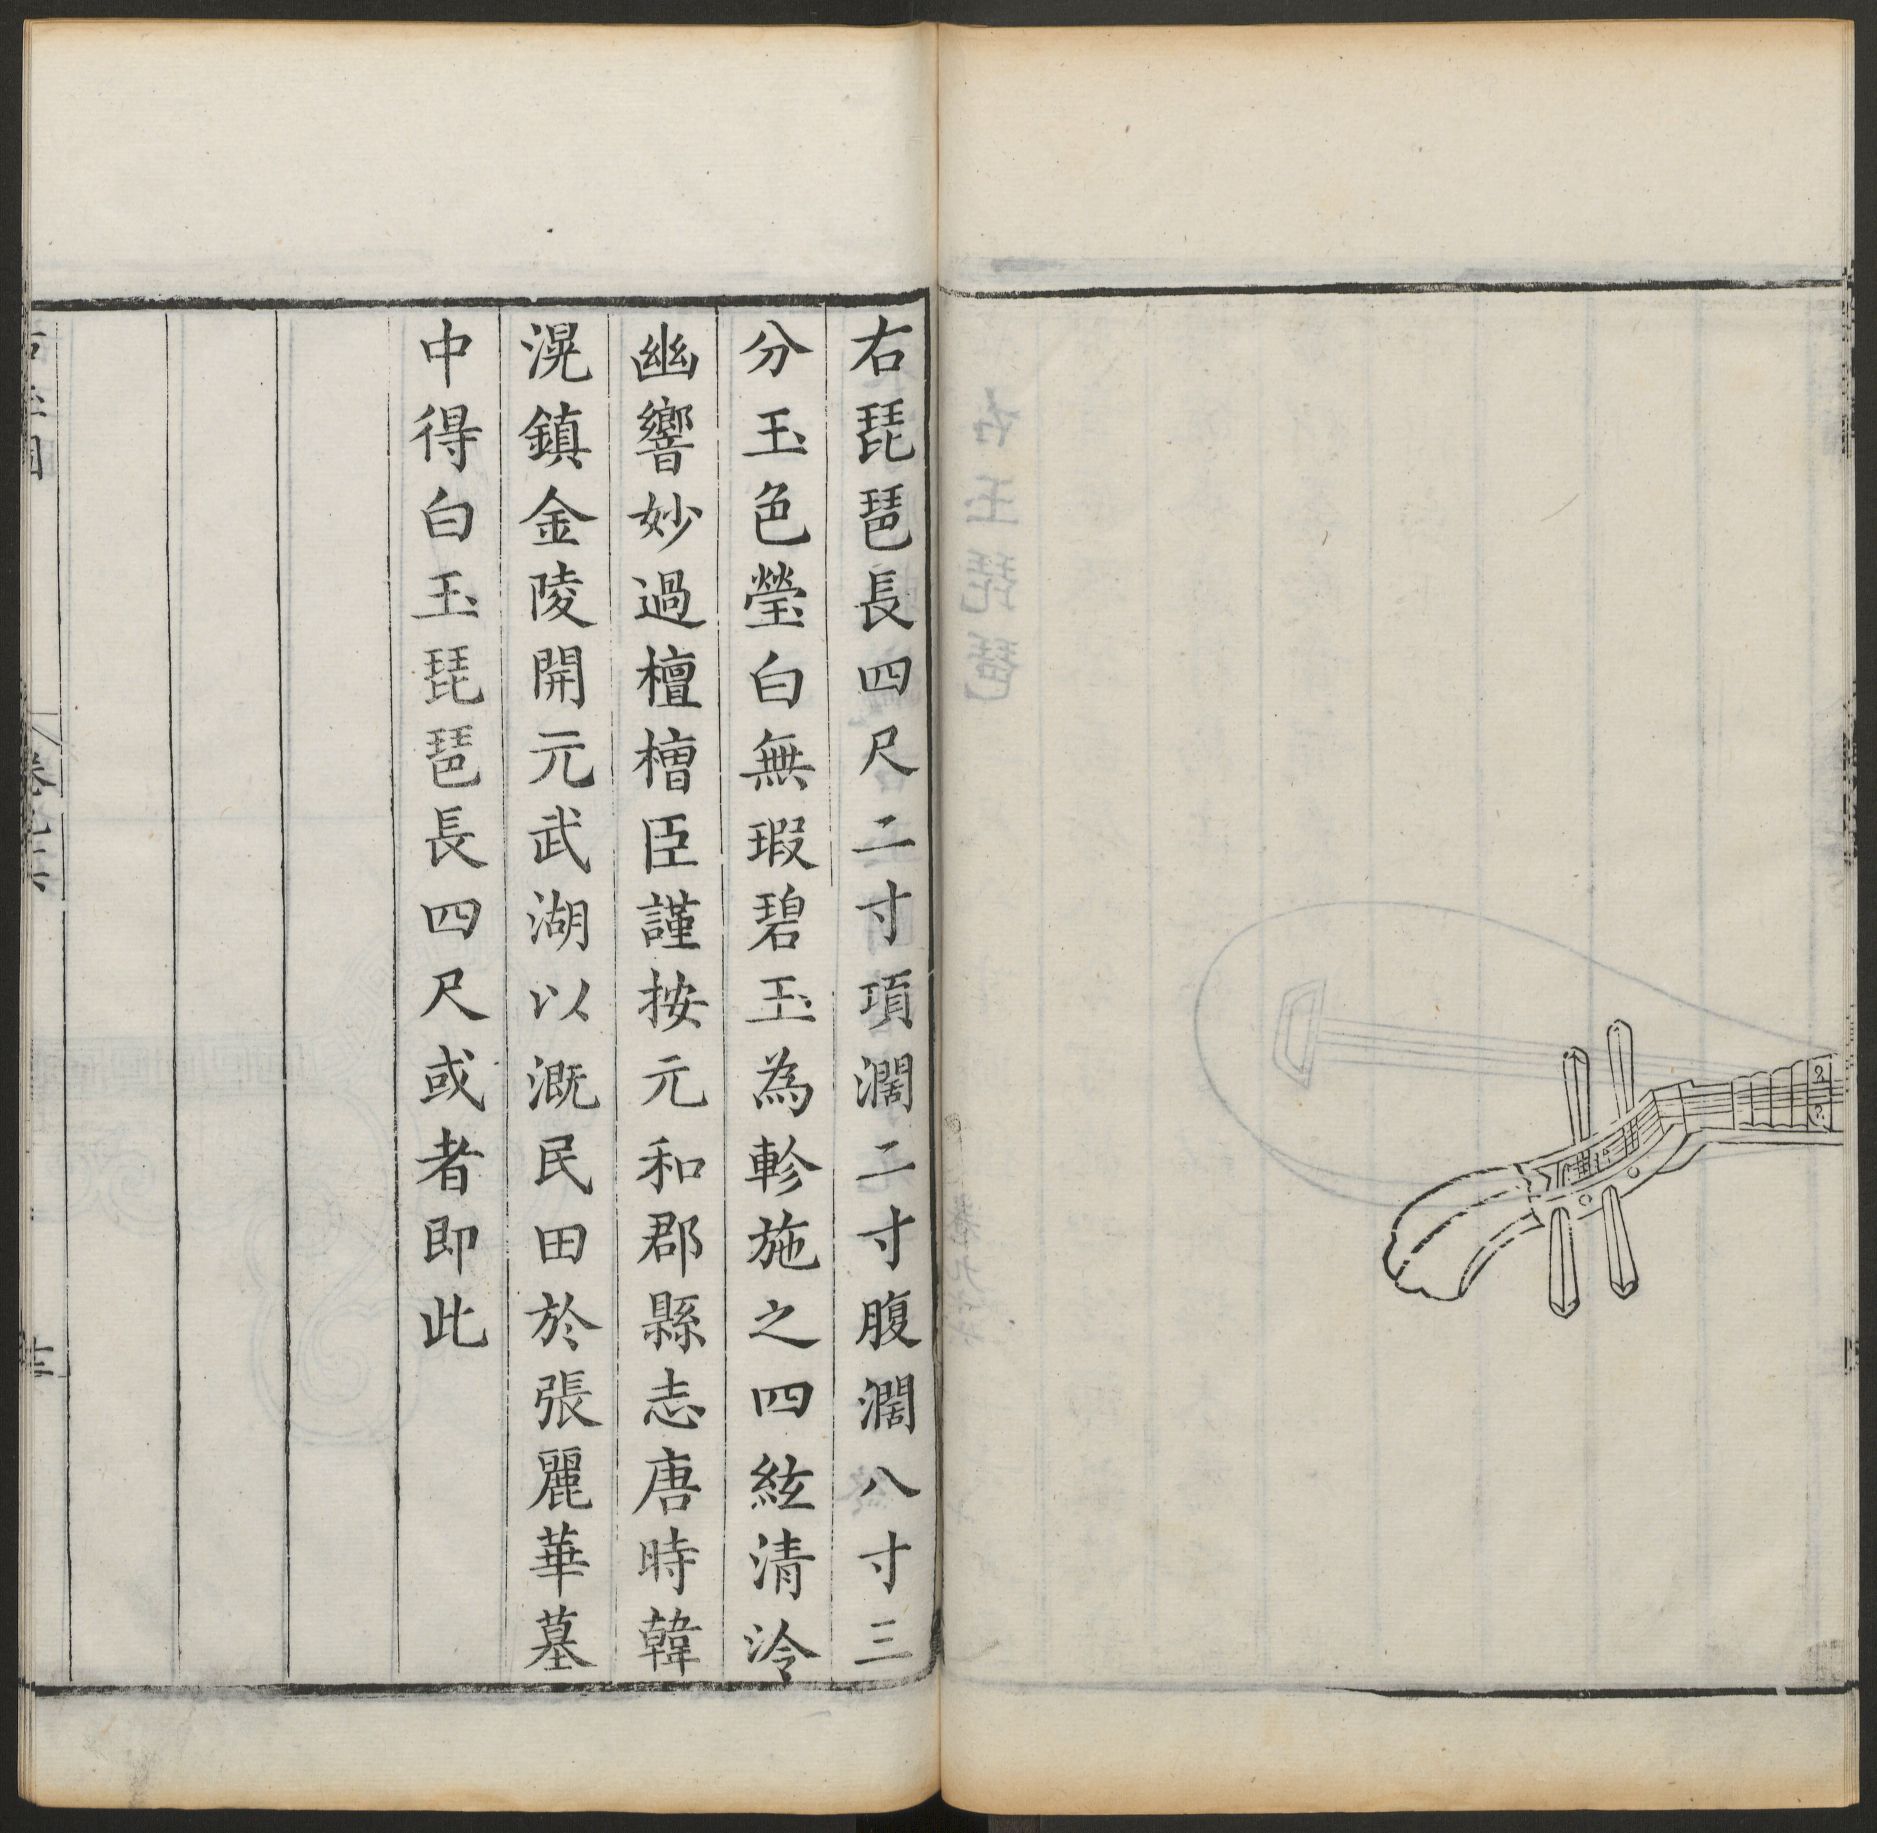 右琵琶長四尺二寸項濶二寸腹濶八寸三
分玉色瑩白無瑕碧玉為軫施之四絃清泠
幽響妙過檀槽臣謹按元和郡縣志唐時韓
滉鎮金陵開元武湖以溉民田於張麗華墓
中得白玉琵琶長四尺或者即此